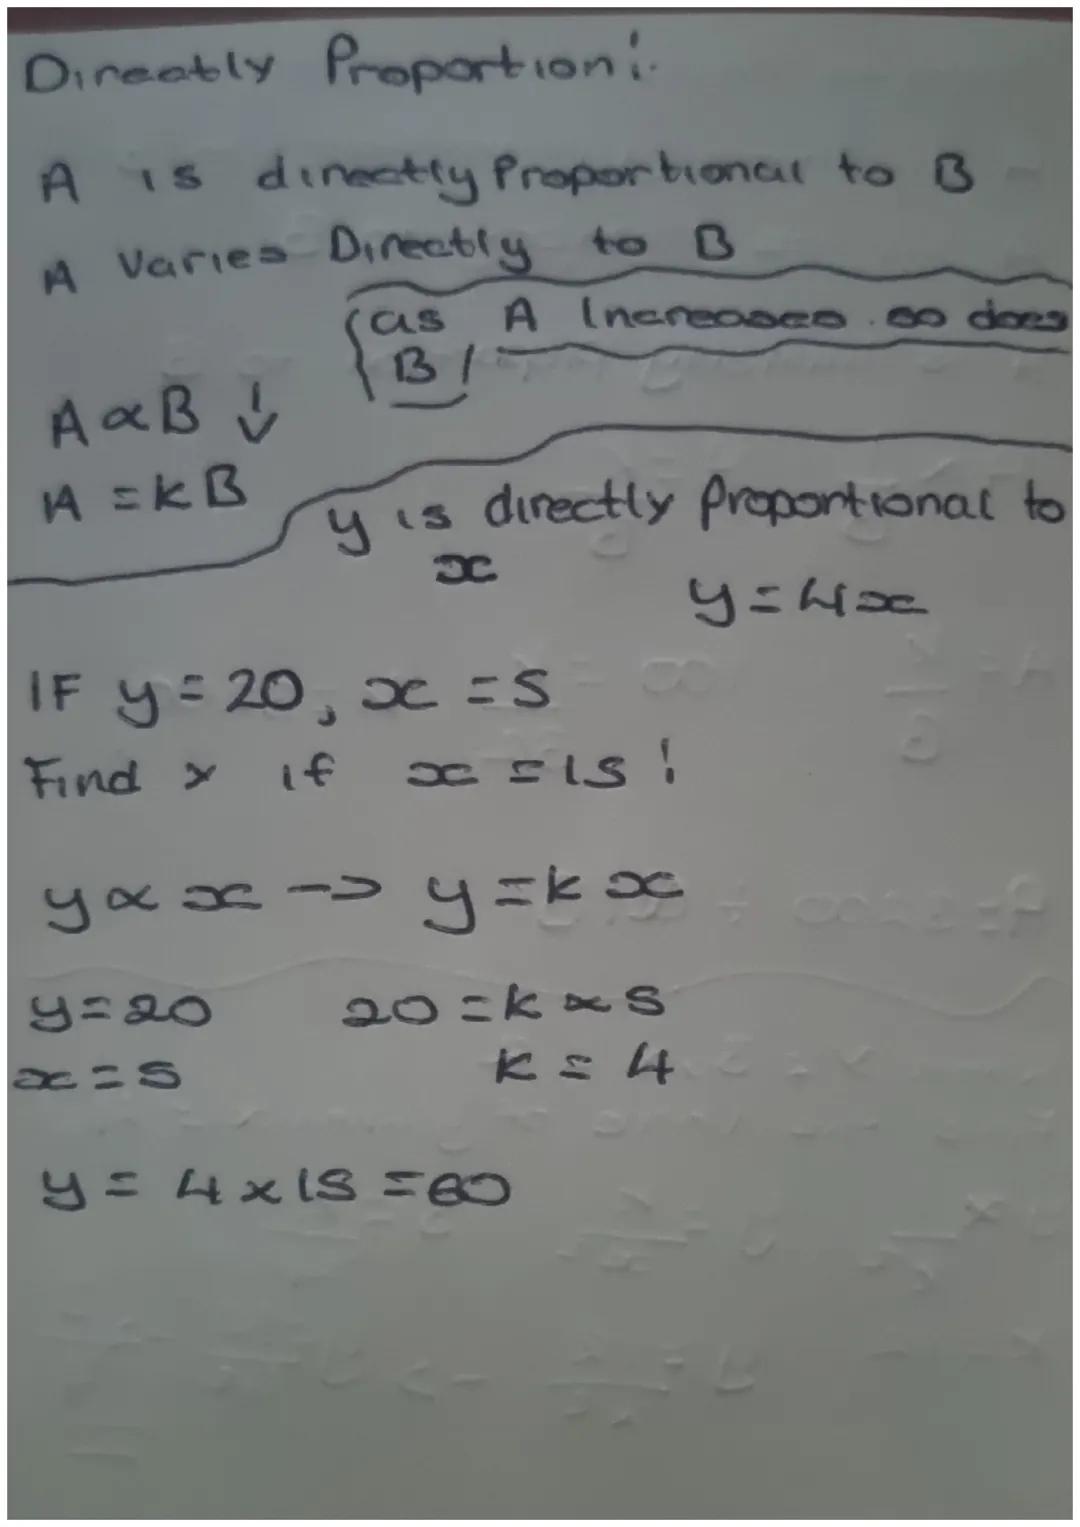 Directly Proportion:
A is directly proportional to B
A Varies Directly to B
(as A Increases so does
B)
A ∝ B ↓
A = kB
y is directly proportional to
x
y = 4x
IF y = 20, x = 5
Find y if x = 15!
y ∝ x -> y = k x
y = 20 20 = k x 5
x = 5 k = 4
y = 4 x 15 = 60